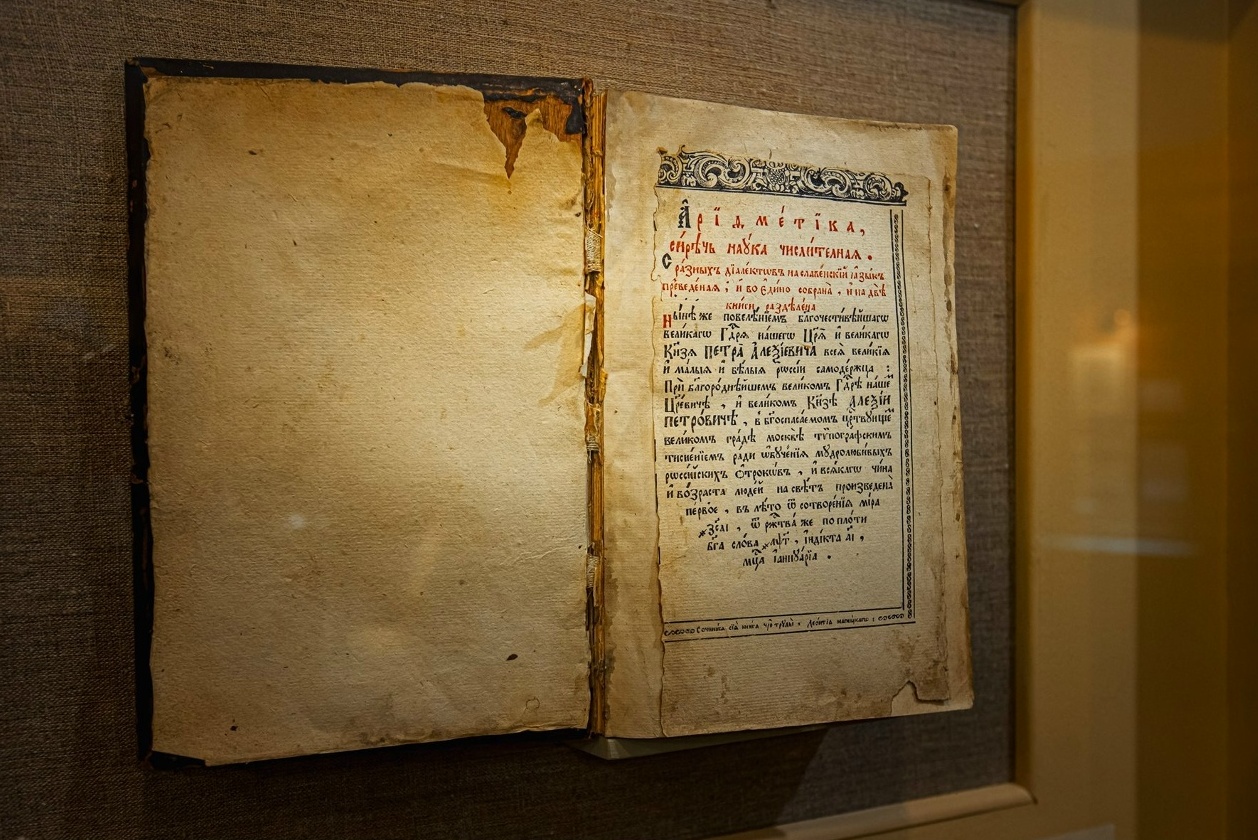 А҆рїѳме́тїка,
си́рѣчь наꙋ́ка числи́телнаѧ.
С ра́зныхъ дїале́ктѡвъ на славе́нскїй ꙗ҆зы́къ
преведе́наѧ, и҆ во є҆ди́но собрана̀, и҆ на двѣ̀
кни̑ги раздѣлена̀
Ны́нѣ же повелѣ́нїемъ благочести́вѣйшагѡ
вели́кагѡ Гдⷭ҇рѧ на́шегѡ Цр҃ѧ̀ и҆ вели́кагѡ
Кн҃зѧ ПЕТРА̀ А҆ЛЕѮІ́ЕВИЧА всеѧ̀ вели́кїѧ
и҆ ма́лыѧ и҆ бѣ́лыѧ рѡссі́и самоде́ржца :
Прѝ благоро́днѣйшемъ вели́комъ Гдⷭ҇рѣ на́ше
Цр҃е́вичѣ, и҆ вели́комъ Кн҃зѣ А҆ЛЕѮІ́И
ПЕТРО́ВИЧѢ, в бг҃оспаса́емомъ црⷭ҇твꙋющѣ
вели́комъ гра́дѣ москвѣ̀ тѷпогра́фскимъ
тисне́нїемъ ра́ди ѡ҆бꙋче́нїѧ мꙋдролюби́выхъ
рѡссі́йскихъ ѻ҆́трокѡвъ, и҆ всѧ́кагѡ чи́на
и҆ во́зраста люде́й на свѣ́тъ произведена̀
пе́рвое, въ лѣ́то ѿ сотворе́нїѧ мі́ра
҂зс҃аі, ѿ ржⷭ҇тва́ же по пло́ти
бг҃а сло́ва ҂аѱ҃г, і҆ндї́кта а҃і,
мцⷭ҇а і҆аннꙋа́рїа.
Сочини́сѧ сїѧ̀ кни́га чрⷥ трꙋды̀ Лео́нтїа магни́цкагѡ :